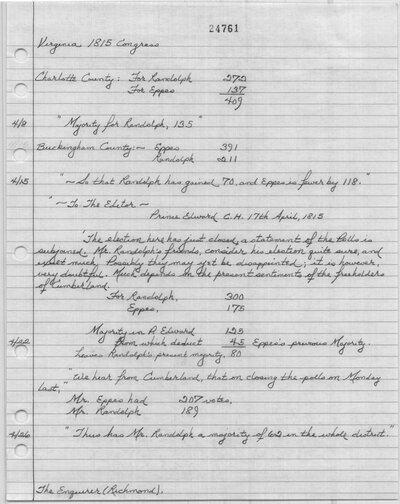 24761
Virginia 1815 Congress
Charlotte County: For Randolph 272
For Eppes 137
409
4/8 "Majority for Randolph, 135"
Buckingham County:~ Eppes 391
Randolph 211
4/15 "~ So that Randolph has gained 70, and Eppes is fewer by 118."
"~ To The Editor ~
Prince Edward C.H. 17th April, 1815
"The election here has just closed, a statement of the Polls is
subjoined. Mr. Randolph's friends, consider his election quite sure, and
exult much. Possibly they may yet be disappointed; it is however
very doubtful. Much depends on the present sentiments of the freeholders
of Cumberland.
For Randolph, 300
Eppes, 175
Majority in P. Edward 125
4/22 from which deduct 45 Eppes's previous Majority.
Leaves Randolph's present majority, 80
"We hear from Cumberland, that on closing the polls on Monday
last,"
Mr. Eppes had 207 votes,
Mr. Randolph 189
4/26 "Thus has Mr. Randolph a majority of 62 in the whole district."
The Enquirer (Richmond).